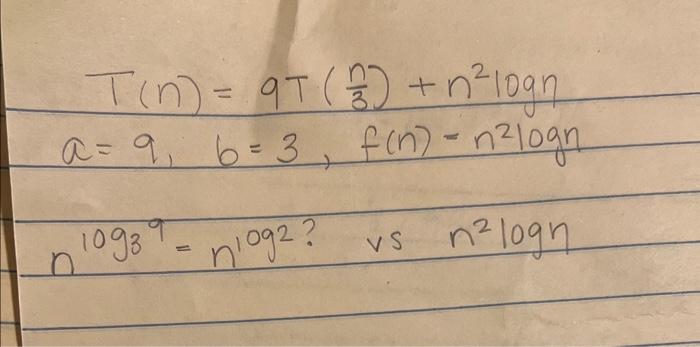 T(n) = 9T(n/3) + n²logn
a = 9, b = 3, f(n) = n²logn
n^log₃9 = n^log2? vs n²logn